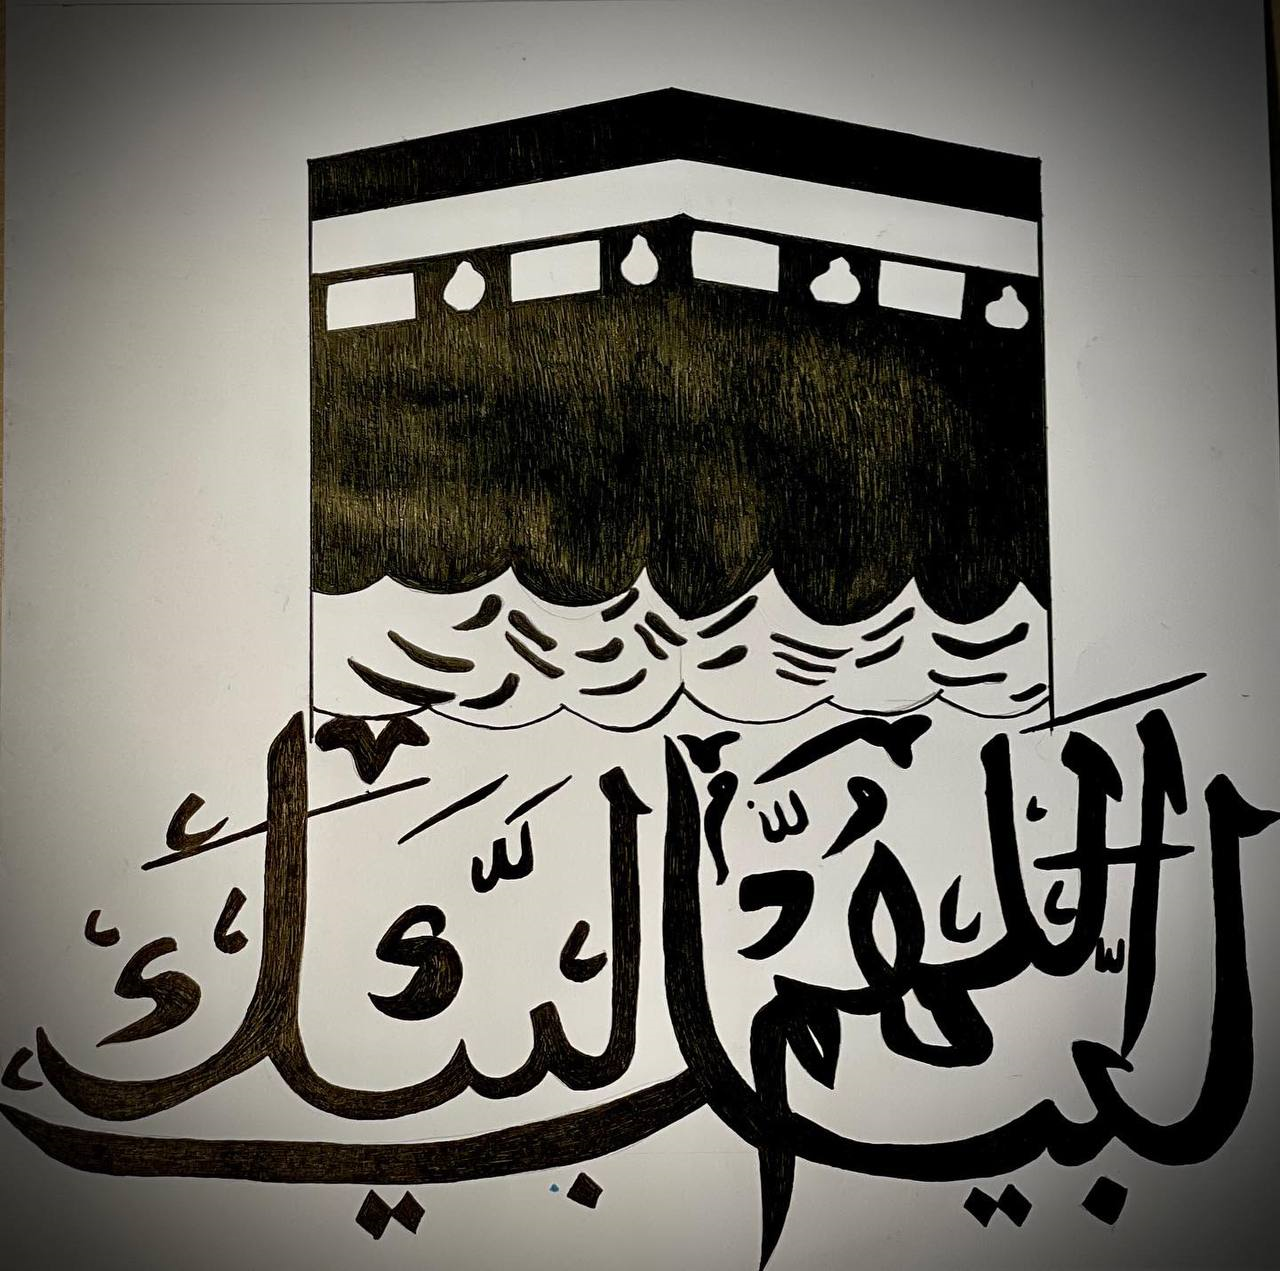 لبيك اللهم لبيك